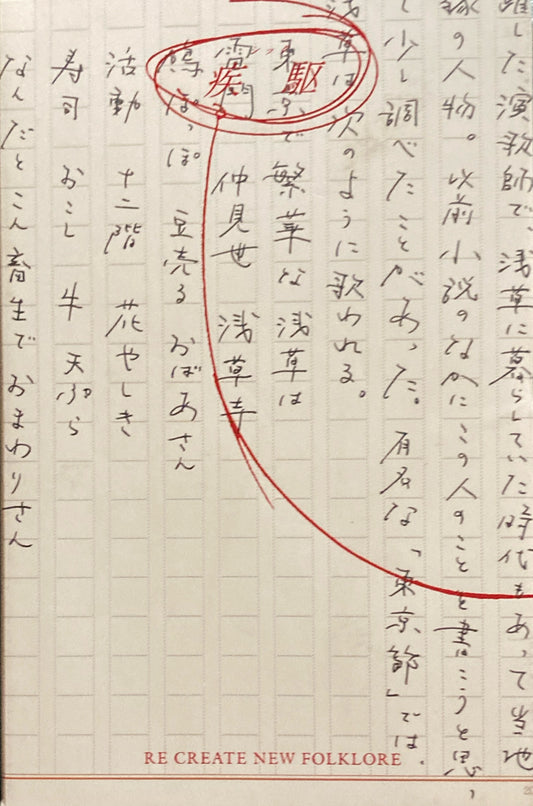 した、演歌師で、浅草に暮らしていた時代もあって当地
の人物。以前小説のなかにこの人のことを書こうと思、
少し調べたことがあった。有名な「東京節」では、
浅草は次のように歌われる。
東京で繁華な浅草は
雷門 仲見世 浅草寺
鳩ぽっぽ 豆売るおばあさん
活動 十二階 花やしき
寿司 おこし 牛 天ぷら
なんだとこん畜生でおまわりさん
駆
疾
RE CREATE NEW FOLKLORE